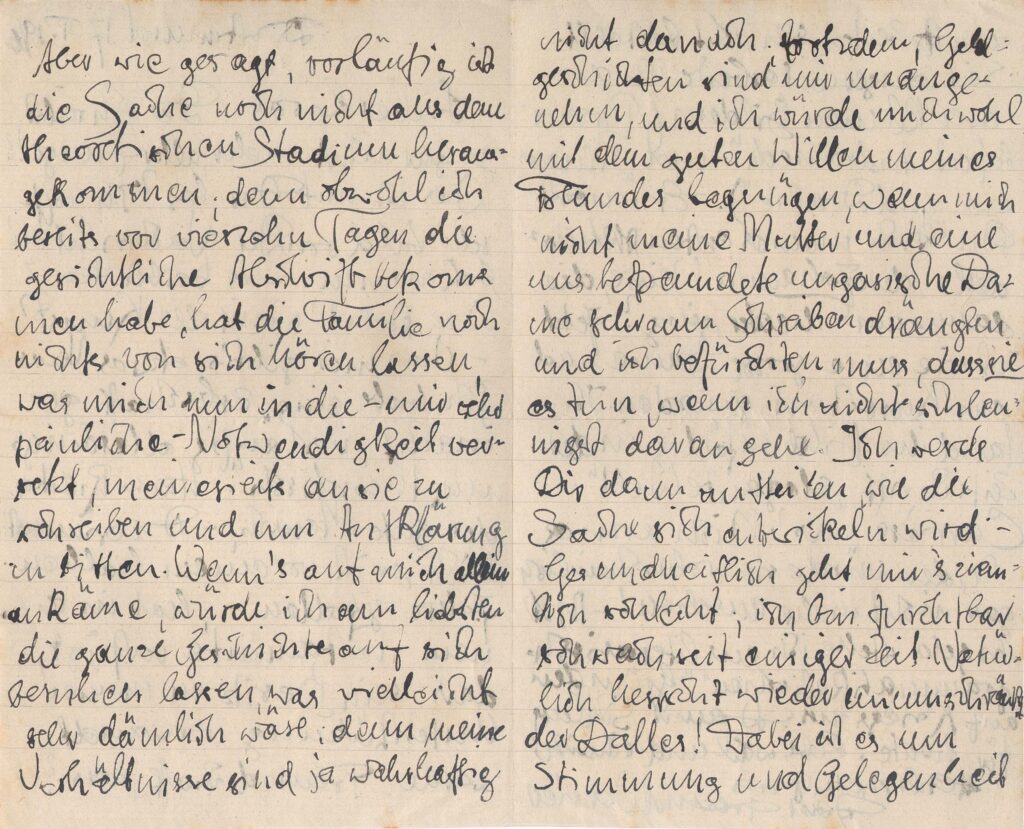 Aber wie gesagt, vorläufig ist
die Sache noch nicht aus dem
theoretischen Stadium heraus-
gekommen; denn obwohl ich
bereits vor vierzehn Tagen die
gerichtliche Abschrift bekom-
men habe, hat die Familie noch
nichts von sich hören lassen,
was mich nun in die – mir sehr
peinliche – Notwendigkeit ver-
setzt, meinerseits an sie zu
schreiben und um Aufklärung
zu bitten. Wenn's auf mich allein
ankäme, würde ich am liebsten
die ganze Geschichte auf sich
beruhen lassen, was vielleicht
sehr dämlich wäre; denn meine
Verhältnisse sind ja wahrhaftig
nicht danach. Trotzdem, Geld-
geschichten sind mir unange-
nehm, und ich würde mich wohl
mit dem guten Willen meines
Freundes begnügen, wenn mich
nicht meine Mutter und eine
uns befreundete ungarische Da-
me sehr zum Schreiben drängten
und ich befürchten muss, dass sie
es tun, wenn ich nicht schleu-
nigst daran gehe. Ich werde
Dir dann mitteilen, wie die
Sache sich entwickeln wird. –
Gesundheitlich geht mir's ziem-
lich schlecht; ich bin furchtbar
schwach seit einiger Zeit. Natür-
lich herrscht wieder uneingeschränkt
der Dalles! Dabei ist es um
Stimmung und Gelegenheit